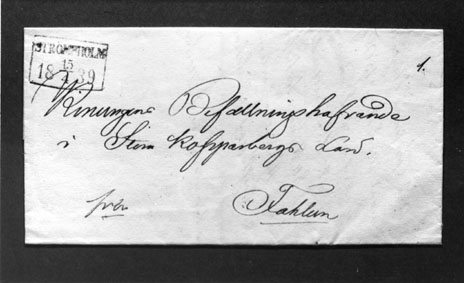 STRÖMSHOLM
15
18 4 39
1.
Konungens Befallningshafvande
i Stora Kopparbergs Län.
Fahlun